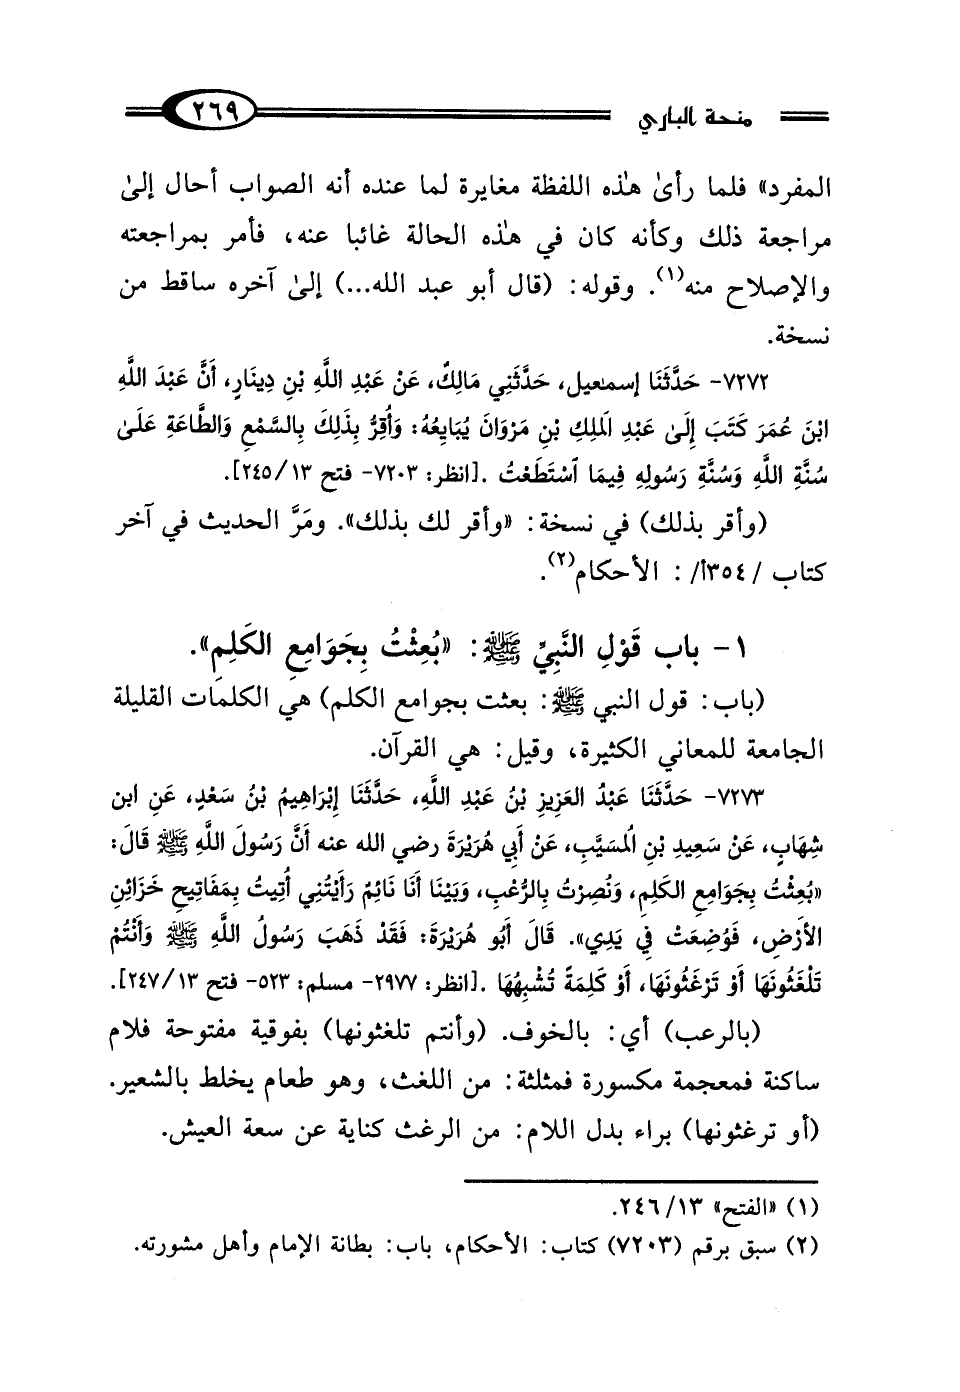 منحة الباري ٢٦٩
المفرد» فلما رأىٰ هذه اللفظة مغايرة لما عنده أنه الصواب أحال إلىٰ
مراجعة ذلك وكأنه كان في هذه الحالة غائبا عنه، فأمر بمراجعته
والإصلاح منه(١). وقوله: (قال أبو عبد الله...) إلىٰ آخره ساقط من
نسخة.
٧٢٧٢- حَدَّثَنَا إسمعيل، حَدَّثَنِي مَالِكٌ، عَنْ عَبْدِ اللَّهِ بْنِ دِينَارٍ، أَنَّ عَبْدَ اللَّهِ
ابْنَ عُمَرَ كَتَبَ إِلَىٰ عَبْدِ المَلِكِ بْنِ مَرْوَانَ يُبَايِعُهُ: وَأُقِرُّ بِذَلِكَ بِالسَّمْعِ وَالطَّاعَةِ عَلَىٰ
سُنَّةِ اللَّهِ وَسُنَّةِ رَسُولِهِ فِيمَا اَسْتَطَعْتُ .[انظر: ٧٢٠٣- فتح ١٣/ ٢٤٥].
(وأقر بذلك) في نسخة: «وأقر لك بذلك». ومَرَّ الحديث في آخر
كتاب /٣٥٤أ/ : الأحكام(٢).
١- باب قَوْلِ النَّبِيِّ ﷺ: «بُعِثْتُ بِجَوَامِعِ الكَلِمِ».
(باب: قول النبي ﷺ: بعثت بجوامع الكلم) هي الكلمات القليلة
الجامعة للمعاني الكثيرة، وقيل: هي القرآن.
٧٢٧٣- حَدَّثَنَا عَبْدُ العَزِيزِ بْنُ عَبْدِ اللَّهِ، حَدَّثَنَا إِبْرَاهِيمُ بْنُ سَعْدٍ، عَنِ ابن
شِهَابٍ، عَنْ سَعِيدِ بْنِ المُسَيَّبِ، عَنْ أَبِي هُرَيْرَةَ رضي الله عنه أَنَّ رَسُولَ اللَّهِ ﷺ قَالَ:
«بُعِثْتُ بِجَوَامِعِ الكَلِمِ، وَنُصِرْتُ بِالرُّعْبِ، وَبَيْنَا أَنَا نَائِمٌ رَأَيْتُنِي أُتِيتُ بِمَفَاتِيحِ خَزَائِنِ
الأَرْضِ، فَوُضِعَتْ فِي يَدِي». قَالَ أَبُو هُرَيْرَةَ: فَقَدْ ذَهَبَ رَسُولُ اللَّهِ ﷺ وَأَنْتُمْ
تَلْغَثُونَهَا أَوْ تَرْغَثُونَهَا، أَوْ كَلِمَةً تُشْبِهُهَا .[انظر: ٢٩٧٧- مسلم: ٥٢٣- فتح ١٣/ ٢٤٧].
(بالرعب) أي: بالخوف. (وأنتم تلغثونها) بفوقية مفتوحة فلام
ساكنة فمعجمة مكسورة فمثلثة: من اللغث، وهو طعام يخلط بالشعير.
(أو ترغثونها) براء بدل اللام: من الرغث كناية عن سعة العيش.
(١) «الفتح» ١٣/ ٢٤٦.
(٢) سبق برقم (٧٢٠٣) كتاب: الأحكام، باب: بطانة الإمام وأهل مشورته.